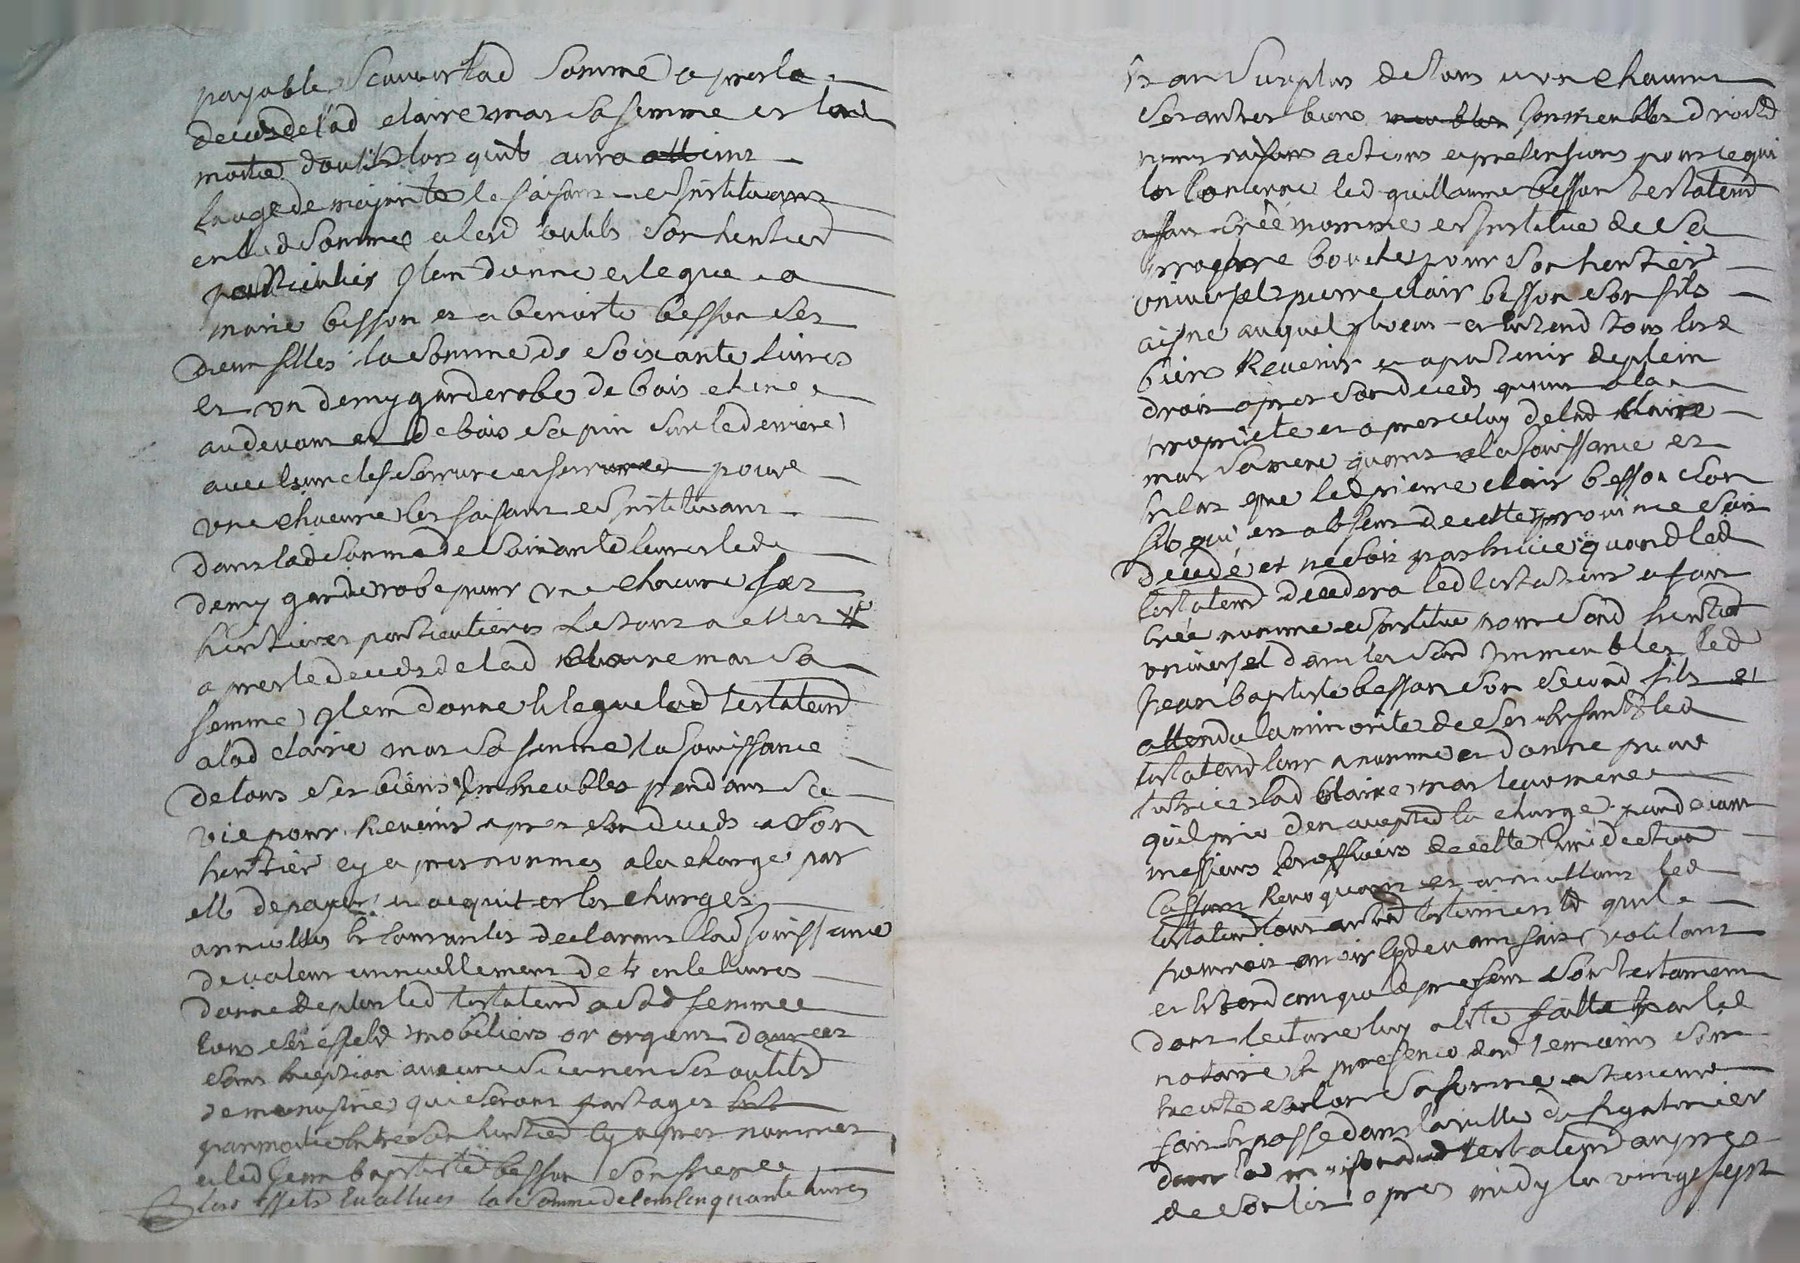 payable scauoir lad somme apres le
decedz de lad claire mas sa femme et lad
moitie d'outilz lors quil aura atteint
laage de majorité le faisant et jnstituant
en lad somme et lesd outils son heritier
particulier jtem donne et legue a
marie besson et a benoite besson ses
deux filles la somme de soixante livres
et un demy garderobe de bois chene
au devant et de bois sapin sur le derriere
avec leur clef serrure et ferrures pour
une chacune les faisant et jnstituant
dans lad somme de soixante livres led
demy garderobe pour une chacune ses
heritieres particulieres le tout a elles
apres le decedz de lad claire mas sa
femme jtem donne et legue led testateur
a lad claire mas sa femme la jouissance
de tous ses biens jmmeubles pendant sa
vie pour revenir apres son decedz a son
heritier cy apres nommé a la charge par
elle de payer et acquitter les charges
annuelles et courantes declarant lad jouissance
de valeur annuellement de trente livres
donne de plus led testateur a sad femme
tous ses effets mobiliers or argent danrées
sans exception aucune si ce n'est ses outils
de menusier qui seront partagés
par moitie entre son heritier cy apres nommé
et led jean baptiste besson son frere
lesd effets evallues la somme de cent cinquante livres
Et au surplus de tous et un chacuns
ses autres biens meubles jmmeubles droits
noms raisons actions et pretensions pour ce qui
les concerne led guillaume besson testateur
a fait créé nommé et jnstitue de sa
propre bouche pour son heritier
universel pierre clair besson son fils
aisne auquel jl veut et entend tous lesd
biens revenir et apartenir de plein
droit apres son decedz quant a la
propriete et apres celuy de lad claire
mas sa mere quant a la jouissance et
en cas que led pierre clair besson son
fils qui est absent de cette province soit
decedé et ne soit pas en vie quand led
testateur decedera led testateur a fait
créé nommé et jnstitue pour sond heritier
universel dans lesd jmmeubles led
jean baptiste besson son second fils et
attendu la minorite de ses enfants led
testateur leur a nommé et donne pour
tutrice lad claire mas leur mere
quil prie d'en accepter la charge pardevant
messieurs les officiers de cette juridiction
cassant revoquant et annullant led
testateur tout autre testament quil
pourroit avoir cy devant fait voulant
et entend que le present son testament
dont lecture luy a été faitte par led
notaire en presence desd temoins sorte
en tous sa forme et teneur
fait et passé dans la ville de
dans la maison dud testateur aupres
de son lit apres midy le vingt sept